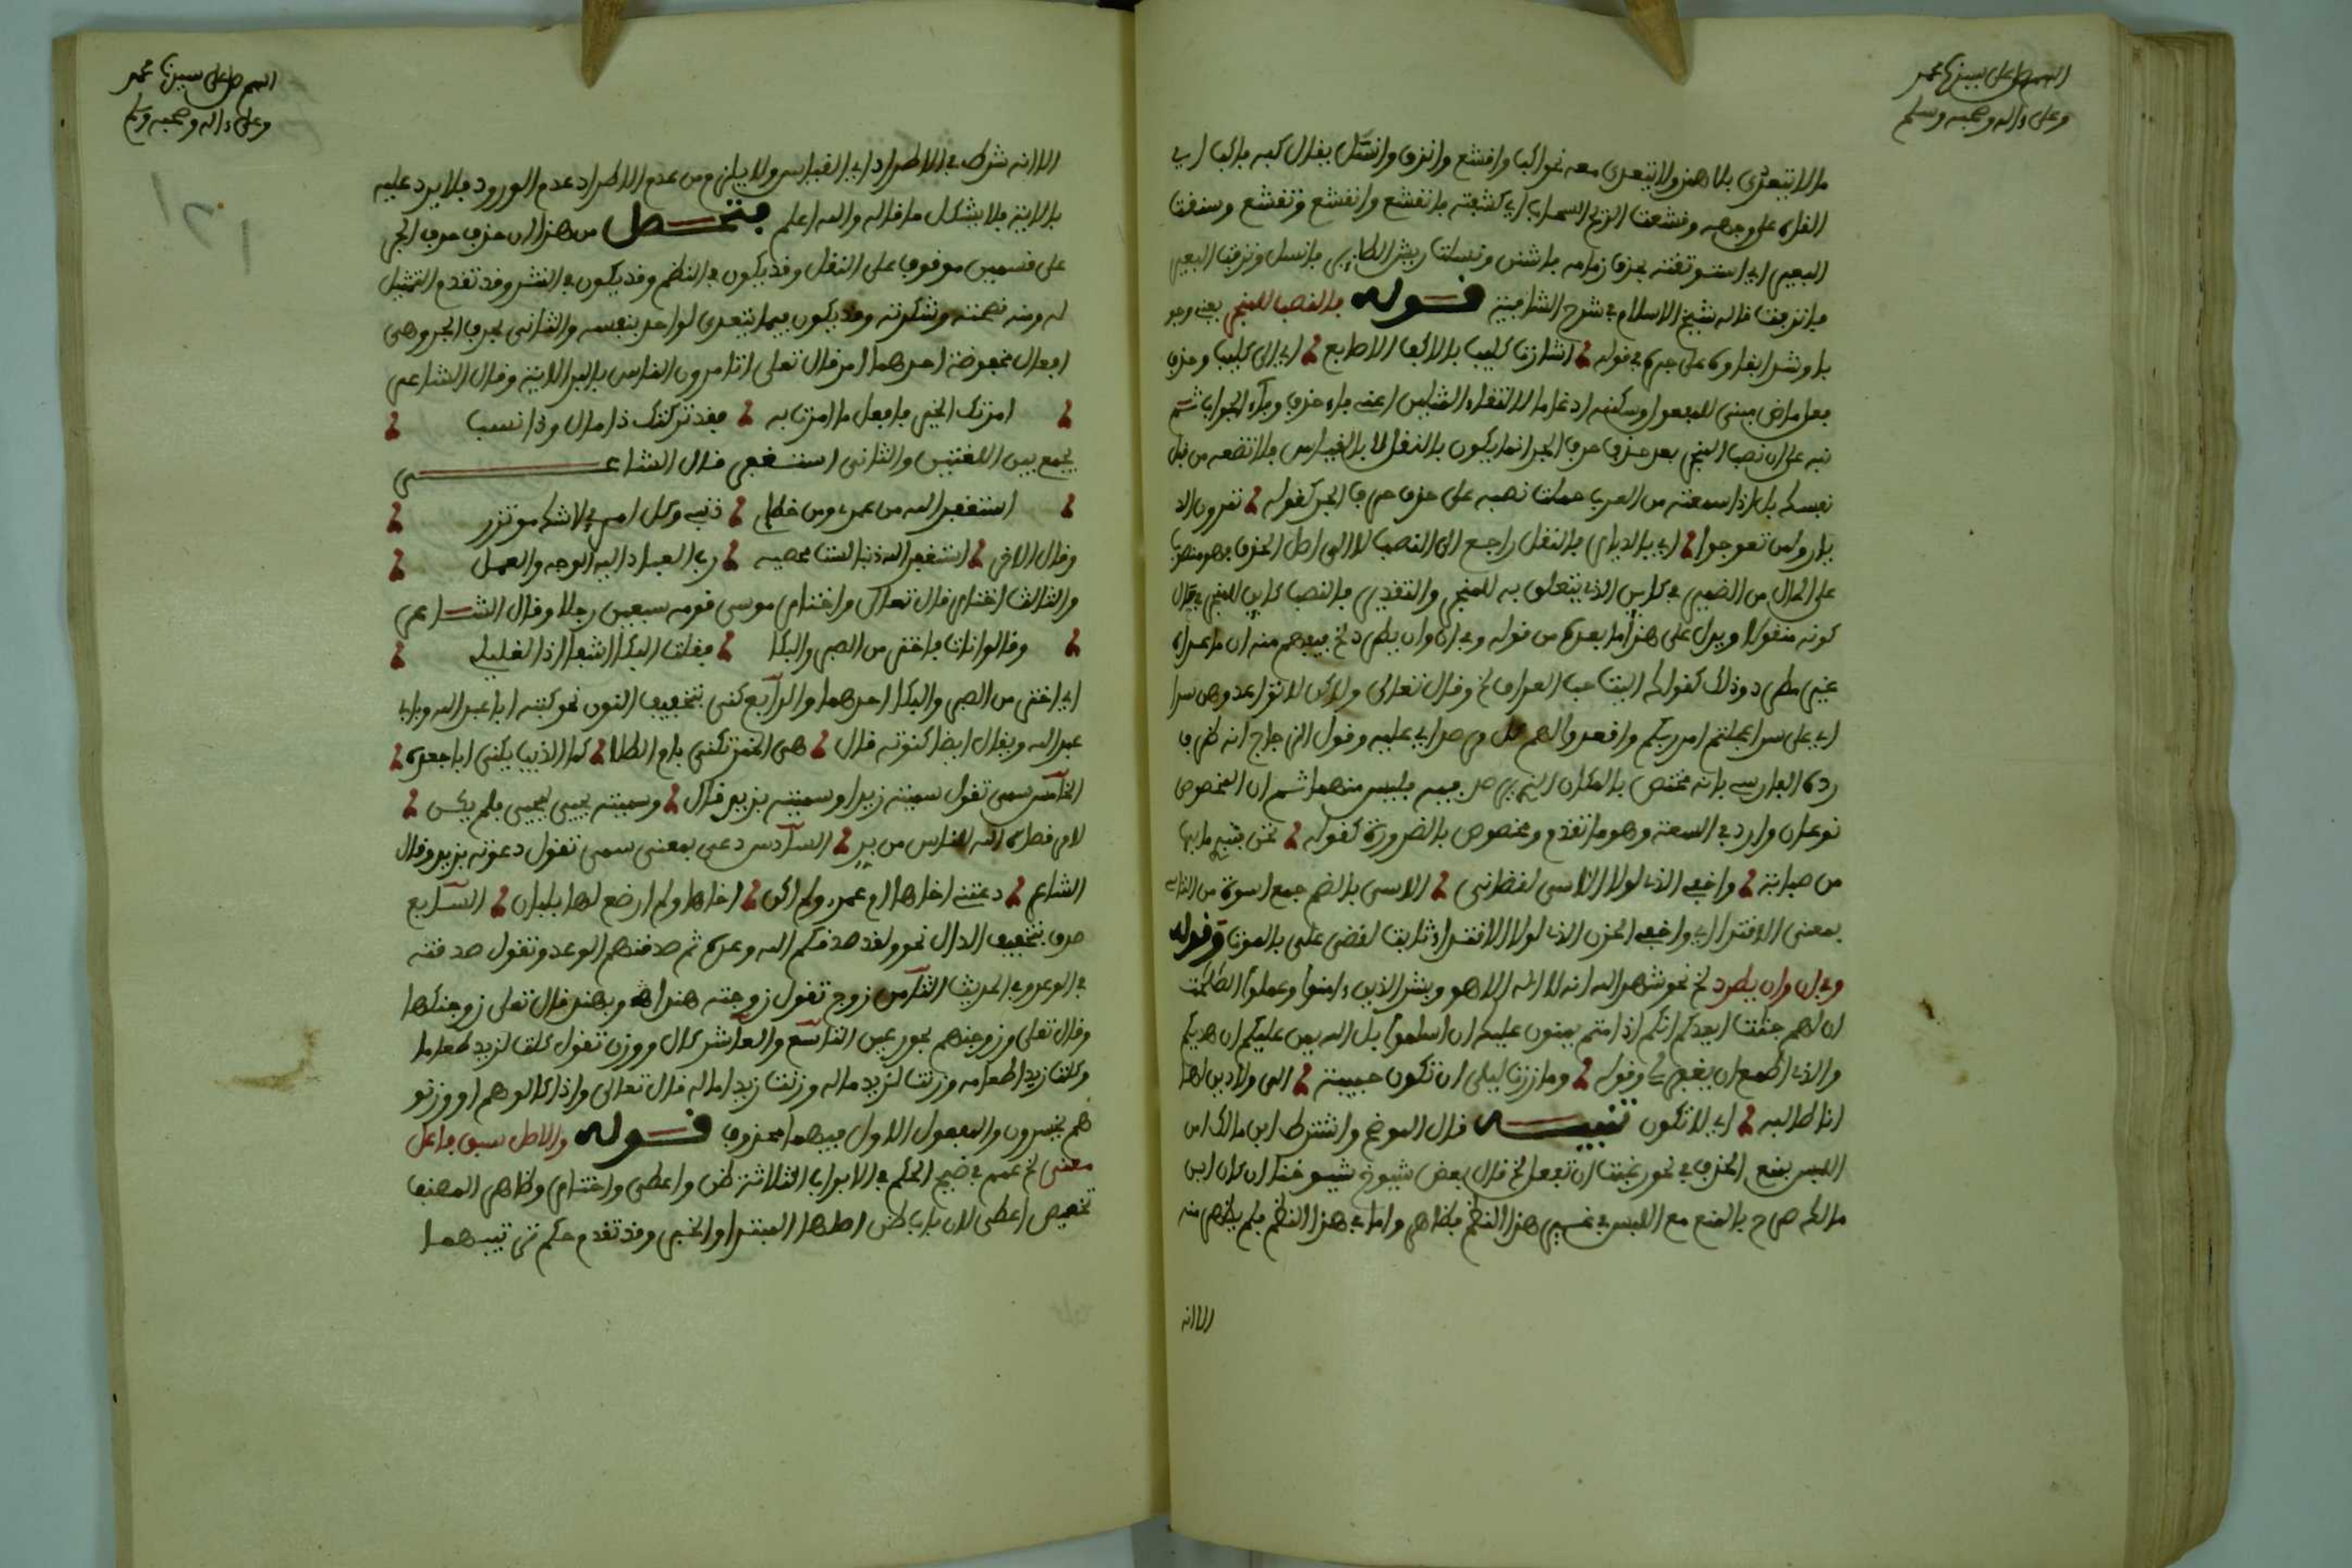 اللهم صل على سيدنا محمد
وعلى ءاله وصحبه وسلم
ما لا يتعدى بلا همز ولا يتعدى معه نحو اكب واقشع وانزف وانسل يقال كبه فاكب اي
الفاه على وجهه وقشعت الريح السحاب اي كشفته فانقشع وانقشع وتقشع وشنقت
البعير اي استوقفته بجذب زمامه فاشنق ونسلت ريش الطاير فانسل ونزفت البير
فانزفت قاله شيخ الاسلام في شرح الشافية قوله فالنصب للمنجر يعني وجو
با وشذ ابقاوه على جره في قوله اشارت كليب بالاكف الاصابع اي الى كليب وحذف
فعل ماض مبني للمفعول وسكنه ادغاما لالتقاء المثلين اعني فاء حذف وفاء الجواب ثم
نبه على ان نصب المنجر بعد حذف حرف الجر انما يكون بالنقل لا بالقياس فلا تضعه من قبل
نفسك بل اذا سمعته من العرب حملت نصبه على حذف حرف الجر كقوله تمرون الد
يار ولم تعوجوا اي بالديار فالنقل راجع الى النصب لا الى اصل الحذف فهو منصوب
على الحال من الضمير في كاين الذي يتعلق به للمنجر والتقدير فالنصب كاين للمنجر في حال
كونه منقولا ويدل على هذا ما بعده من قوله وفي ان وان يطرد الخ فيفهم منه ان ما عداه
غير مطرد وذلك كقوله اليت حب العراق الخ وقال تعالى ولاكن لا تواعدوهن سرا
اي على سر اعجلتم امر ربكم واقعدوا لهم كل مرصد اي عليه وقول الزجاج انه ظرف
رده الفارسي بانه مختص بالمكان الذي يرصد فيه فليس منهما ثم ان المخصوص
نوعان وارد في السعة وهو ما تقدم ومخصوص بالضرورة كقوله تحن فتبدي ما بها
من صبابة واخفي الذي لولا الاسى لقضاني الاسى بالضم جمع اسوة
بمعنى الاقتداء اي واخفي الحزن الذي لولا الاقتداء ثابت لقضى علي بالموت وقوله
وفي ان وان يطرد الخ نحو شهد الله انه لا اله الا هو وبشر الذين ءامنوا وعملوا الصالحات
ان لهم جنات ايعدكم انكم اذا متم يمنون عليك ان اسلموا بل الله يمن عليكم ان هديكم
والذي اطمع ان يغفر لي وقوله وما زرت ليلى ان تكون حبيبة الى ولا دين لها
انا طالبه اي لا تكون تنبيه قال الموضح واشترط ابن مالك امن
اللبس بمنع الحذف في نحو رغبت ان تفعل الخ قال بعض شيوخ شيوخنا ان كان ابن
مالك صرح بالمنع مع اللبس في غير هذا النظم فظاهر واما في هذا النظم فلم يظهر منه
الا انه
اللهم صل على سيدنا محمد
وعلى ءاله وصحبه وسلم
121
الا انه شرط في الاطراد اي القياس ولا يلزم من عدم الاطراد عدم الورود فلا يرد عليه
بالاية فلا يشكل ما قاله والله اعلم فتحصل من هذا ان حذف حرف الجر
على قسمين موقوف على النقل وقد يكون في النظم وقد يكون في النثر وقد تقدم التمثيل
له ومنه نصحته وشكرته وقد يكون فيما يتعدى لواحد بنفسه والثاني بحرف الجر وهي
افعال محفوظة احدها امر قال تعلى اتامرون الناس بالبر الاية وقال الشاعر
امرتك الخير فافعل ما امرت به فقد تركتك ذا مال وذا نسب
فجمع بين اللغتين والثاني استغفر قال الشاعر
استغفر الله من عمدي ومن خطإي ذنبي وكل امرئ لا شك موتزر
وقال الاخر استغفر الله ذنبا لست محصيه رب العباد اليه الوجه والعمل
والثالث اختار قال تعالى واختار موسى قومه سبعين رجلا وقال الشاعر
وقالوا نات فاختر من الصبر والبكا فقلت البكا اشفى اذا لغليلي
اي اختر من الصبر والبكا احدهما والرابع كنى بتخفيف النون نحو كنيته ابا عبد الله وبابي
عبد الله ويقال ايضا كنوته قال هي الخمر تكنى بام الطلا كما الذيب يكنى ابا جعده
الخامس سمى تقول سميته زيدا وسميته بزيد قال وسميته يحيى ليحيى فلم يكن
لامر قضاه الله للناس من بد السادس دعى بمعنى سمى تقول دعوته بزيد وقال
الشاعر دعتني اخاها ام عمرو ولم اكن اخاها ولم ارضع لها بلبان السابع
صدق بتخفيف الدال نحو ولقد صدقكم الله وعده ثم صدقنهم الوعد وتقول صدقته
في الوعد وفي الحديث الثامن زوج تقول زوجته هندا وبهند قال تعلى زوجنكها
وقال تعلى وزوجنهم بحور عين التاسع والعاشر كال ووزن تقول كلت لزيد طعاما
وكلت زيدا طعامه ووزنت لزيد ماله ووزنت زيدا ماله قال تعالى واذا كالوهم او وزنو
هم يخسرون والمفعول الاول فيهما محذوف قوله والاصل سبق فاعل
معنى الخ عمم في ضيح الحكم في الابواب الثلاثة ظن واعطى واختار وظاهر المصنف
تخصيص اعطى لان باب ظن اصلها المبتدا والخبر وقد تقدم حكم ترتيبهما